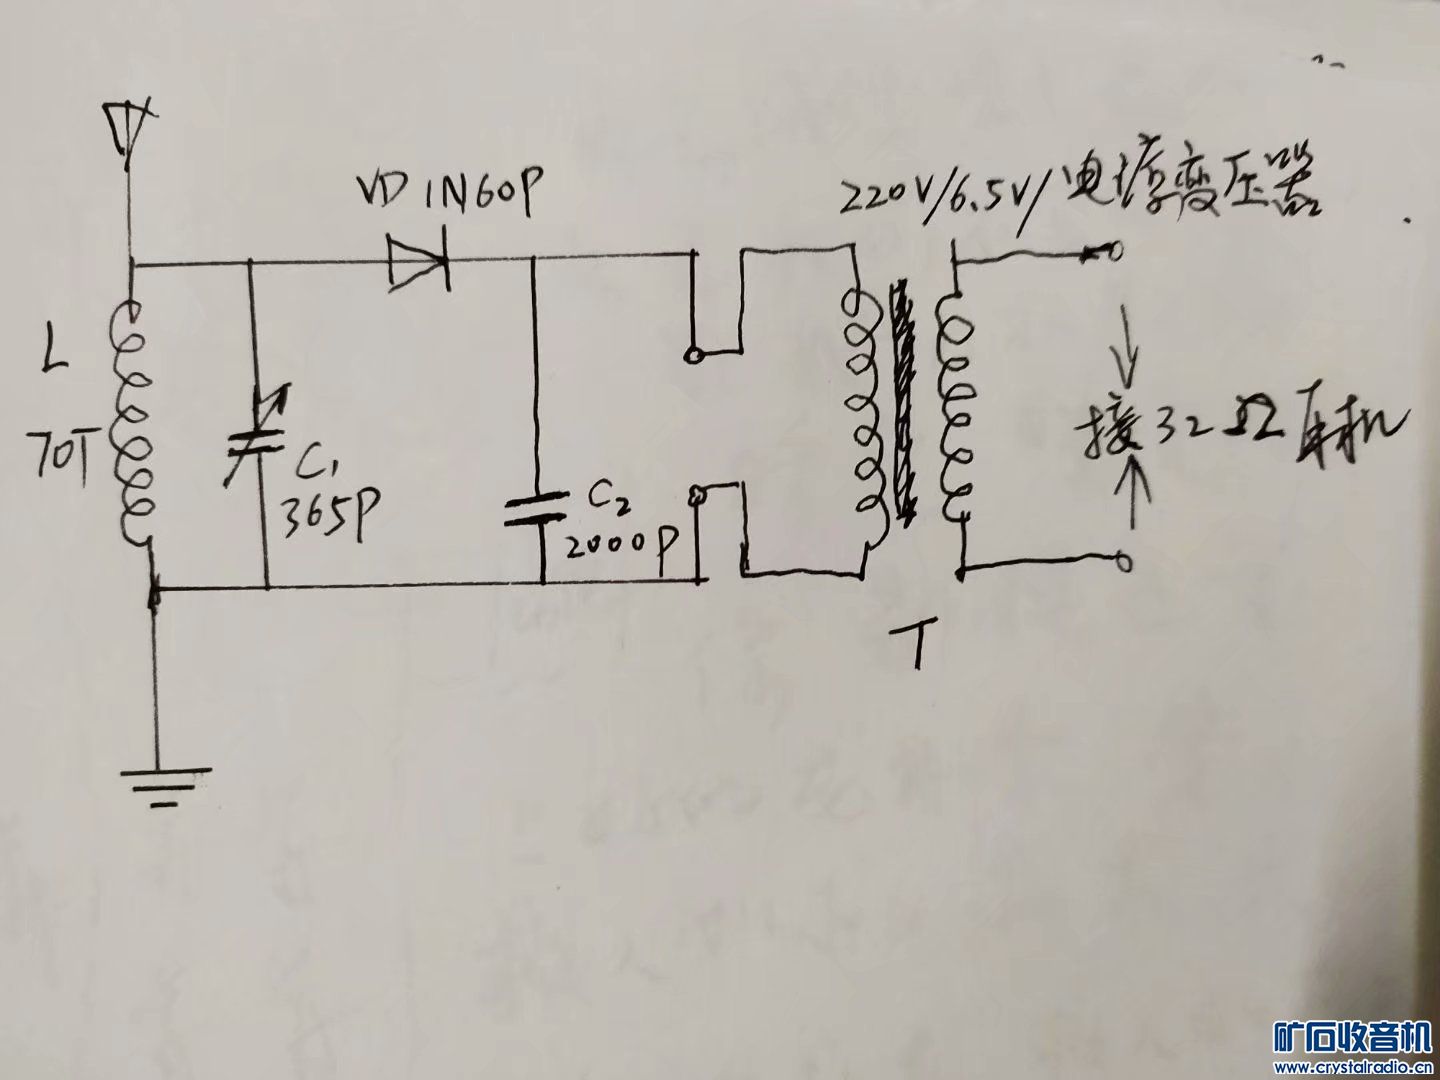 VD 1N60P
220V/6.5V/电源变压器
L
70T
C1
365P
C2
2000P
接32Ω耳机
T
矿石收音机
www.crystalradio.cn